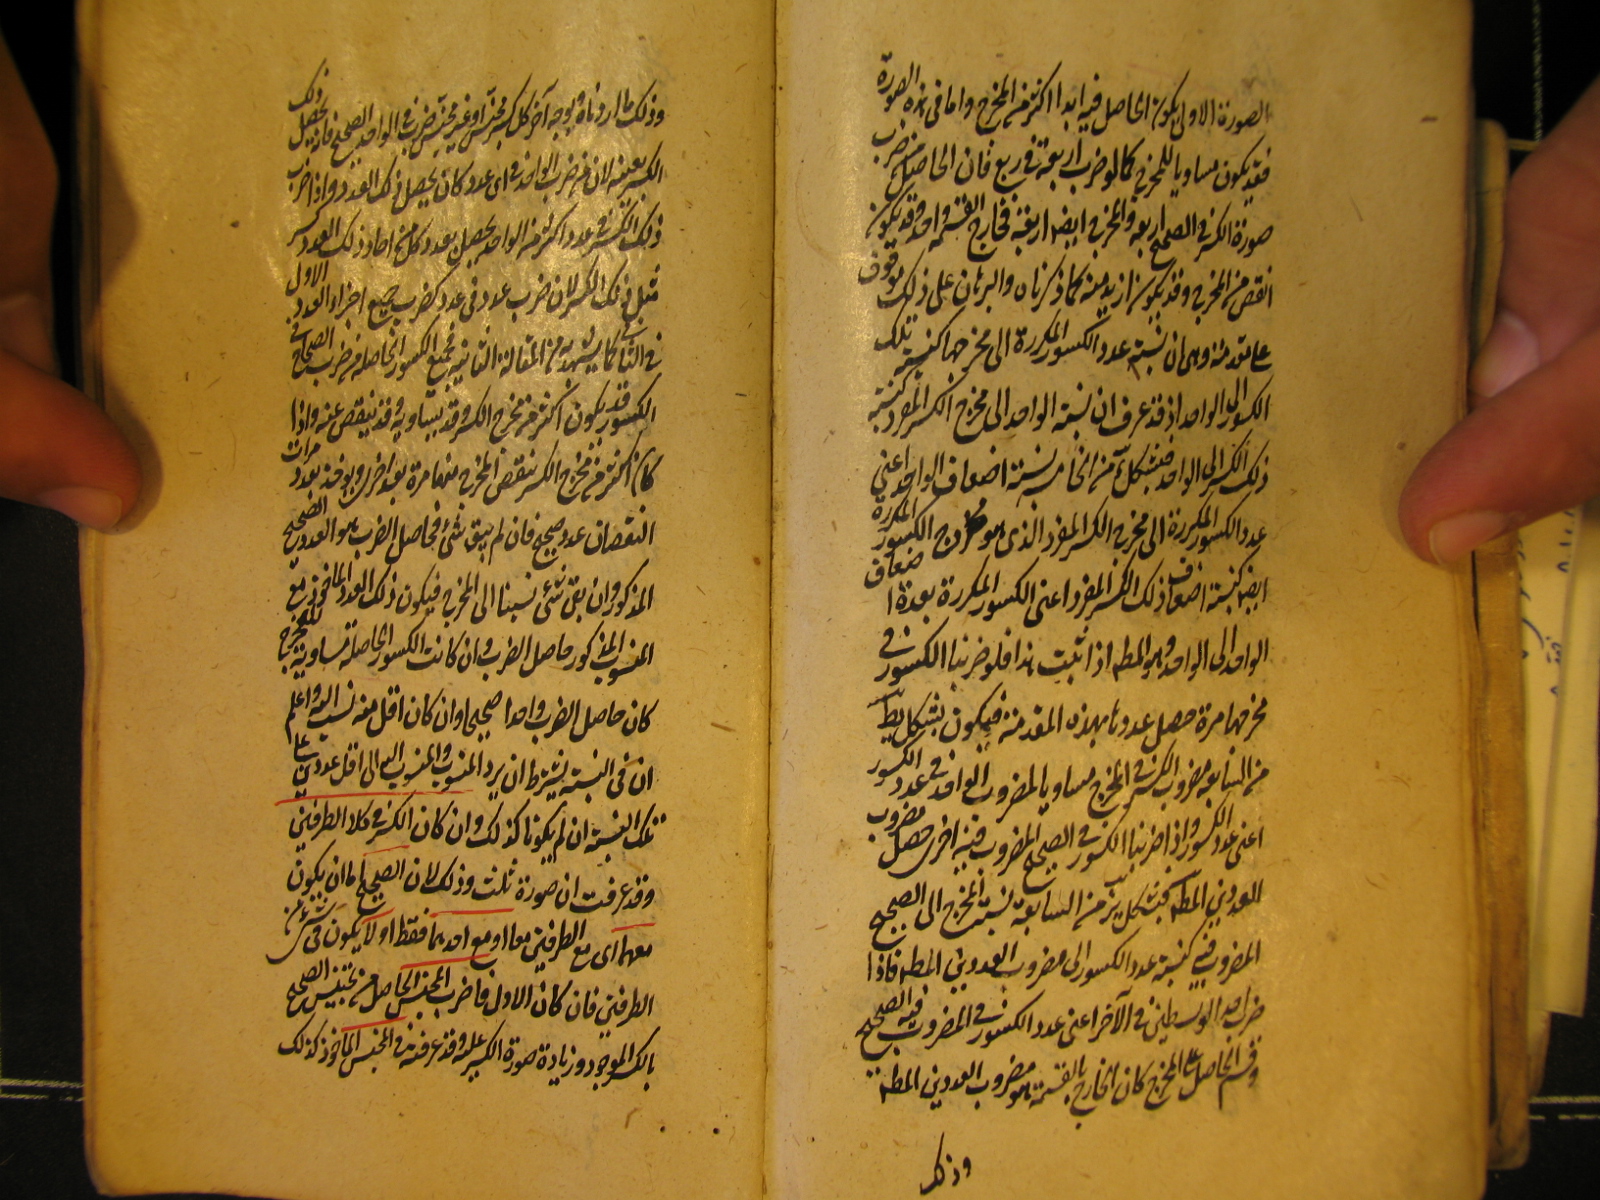 الصورة الاولى يكون الحاصل فيه ابدا اكثر من المخرج واما فى هذه الصورة
فقد يكون مساويا للمخرج كما لو ضرب اربعة فى ربع فان الحاصل من ضرب
صورة الكسر فى الصحيح اربعة والمخرج ايضا اربعة فخارج القسمة واحد وقد يكون
انقص من المخرج وقد يكون ازيد منه كما ذكرناه والبرهان على ذلك موقوف
على مقدمة وهى ان نسبة عدد الكسور المكررة الى مخرجها كنسبة تلك
الكسور الى الواحد اذ قد عرف ان نسبة الواحد الى مخرج الكسر المفرد كنسبة
ذلك الكسر الى الواحد فبشكل من الخامسة نسبة اضعاف الواحد اعنى
عدد الكسور المكررة الى مخرج الكسر المفرد الذى هو مخرج الكسور المكررة
ايضا كنسبة اضعاف ذلك الكسر المفرد اعنى الكسور المكررة بعدة اضعاف
الواحد الى الواحد وهو المط اذا ثبت هذا فلو ضربنا الكسور فى
مخرجها مرة حصل عددها بهذه المقدمة فيكون بشكل يط
من السابعة مضروب الكسر فى المخرج مساويا لمضروب الواحد فى عدد الكسور
اعنى عدد الكسور واذا ضربنا الكسور فى الصحيح المضروب فيه اخرى حصل مضروب
العددين المط فبشكل يز من السابعة نسبة المخرج الى الصحيح
المضروب فيه كنسبة عدد الكسور الى مضروب العددين المط فاذا
ضرب احد الوسطين فى الآخر اعنى عدد الكسور فى المضروب فيه الصحيح
وقسم الحاصل على المخرج كان الخارج بالقسمة هو مضروب العددين المط
وذلك
وذلك ما اردناه وبوجه آخر كل كسر مجنس او غير مجنس ضرب فى الواحد الصحيح فانه يحصل ذلك
الكسر بعينه لان من ضرب الواحد فى اى عدد كان يحصل ذلك العدد واذا ضرب
ذلك الكسر فى عدد اكثر من الواحد يحصل بعدد كل من احاد ذلك العدد كسر
مثل ذلك الكسر لان ضرب عدد فى عدد كضرب جميع اجزاء العدد الاول
فى الثانى كما يشهد به من المقالة الثانية فجميع الكسور الحاصلة من ضرب الصحاح فى
الكسور قد يكون اكثر من مخرج الكسر وقد يساويه وقد ينقص عنه واذا
كان اكثر من مخرج الكسر ينقص المخرج منها مرة بعد اخرى ويؤخذ بعدد مرات
النقصان عدد صحيح فان لم يبق شئ فحاصل الضرب هو العدد الصحيح
المذكور وان بقى شئ نسبنا الى المخرج فيكون ذلك العدد المأخوذ مع
المنسوب المذكور حاصل الضرب وان كانت الكسور الحاصلة مساوية للمخرج
كان حاصل الضرب واحدا صحيحا وان كان اقل منه نسب اليه واعلم
ان فى النسبة يشترط ان يرد المنسوب والمنسوب اليه الى اقل عددين على
تلك النسبة ان لم يكونا كذلك وان كان الكسر فى كلا الطرفين
وقد عرفت ان صورة ثلث وذلك لان الصحيح اما ان يكون
معهما اى مع الطرفين معا او مع احدهما فقط او لا يكون فى شئ من
الطرفين فان كان الاول فاضرب المجنس الحاصل من تجنيس الصحيح
بالكسر الموجود وزيادة صورة الكسر عليه وقد عرفته فى المجنس المأخوذ كذلك